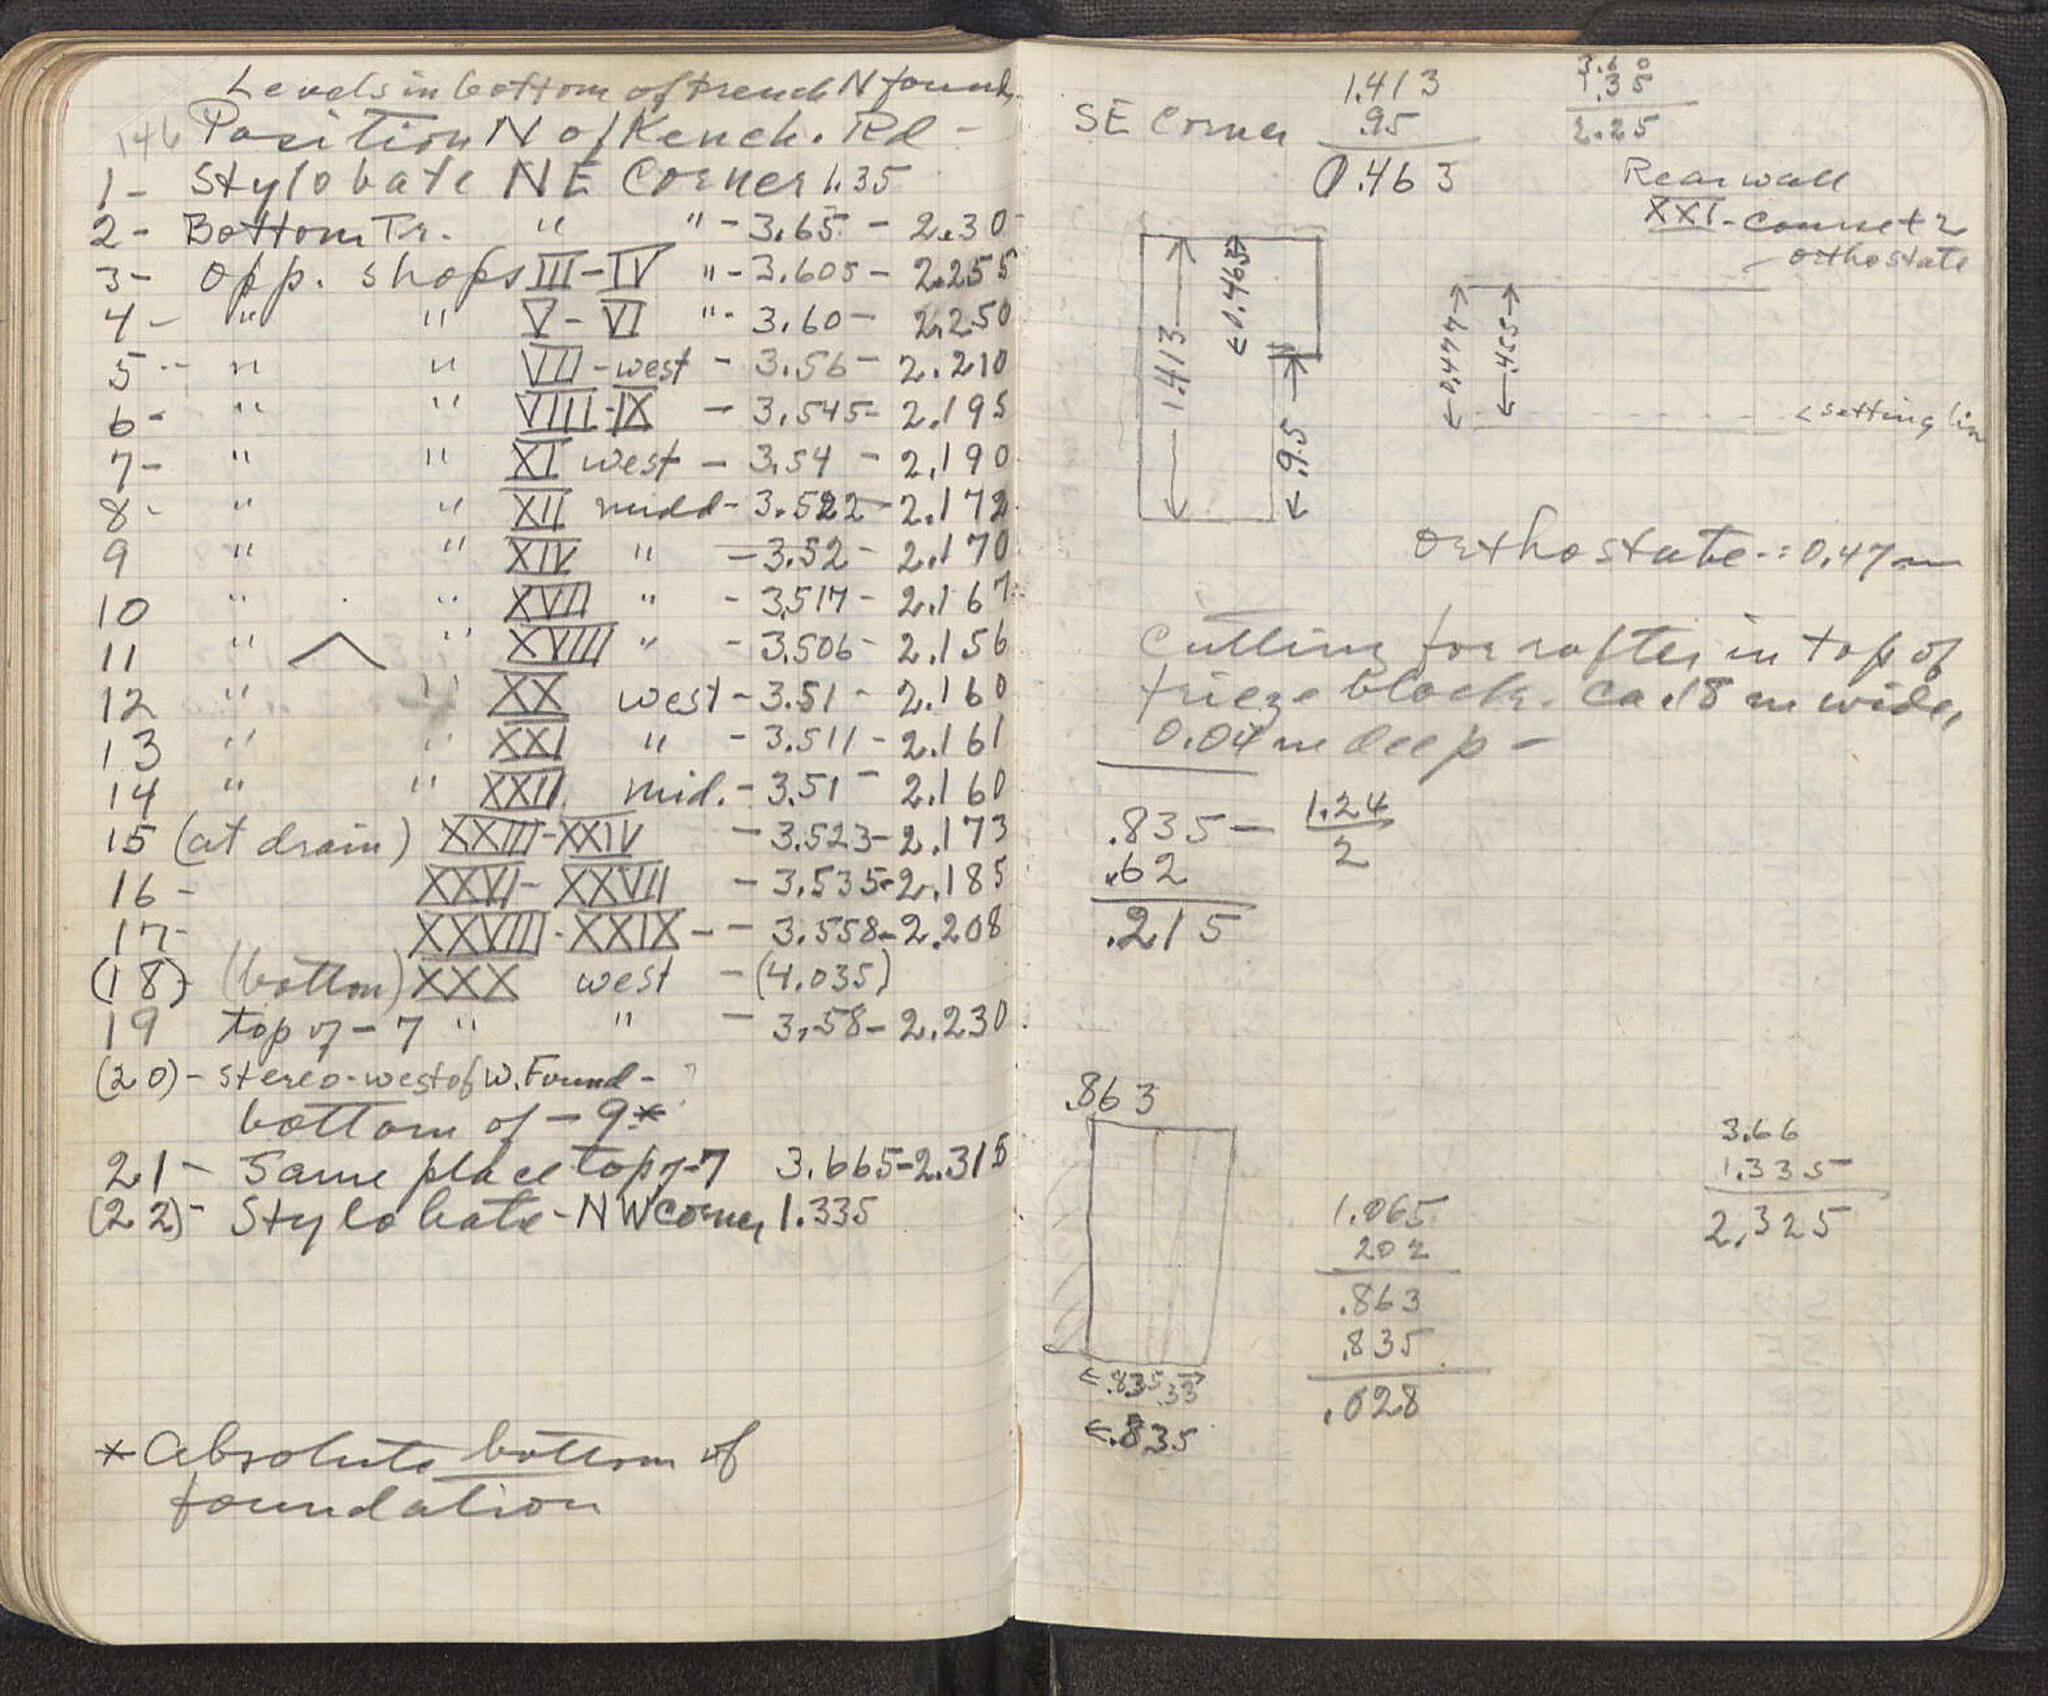 Levels in bottom of trench N found.
146 Position N of Kench. Rd -
1- Stylobate NE Corner 1.35
2- Bottom Tr. " " - 3.65 - 2.30
3- Opp. shops III-IV " - 3.605 - 2.255
4- " " V-VI " - 3.60 - 2.250
5- " " VII-west - 3.56 - 2.210
6- " " VIII-IX - 3.545 - 2.195
7- " " XI west - 3.54 - 2.190
8- " " XII midd - 3.522 - 2.172
9 " " XIV " - 3.52 - 2.170
10 " " XVII " - 3.517 - 2.167
11 " " XVIII " - 3.506 - 2.156
12 " " XX west - 3.51 - 2.160
13 " " XXI " - 3.511 - 2.161
14 " " XXII mid. - 3.51 - 2.160
15 (at drain) XXIII-XXIV - 3.523 - 2.173
16 - XXVI-XXVII - 3.535 - 2.185
17- XXVIII-XXIX - - 3.558 - 2.208
(18) (bottom) XXX west - (4.035)
19 top of - 7 " " - 3.58 - 2.230
(20) - stereo - west of W. Found -
bottom of - 9*
21- Same place top of - 7 3.665 - 2.315
(22) - Stylobate - NW Corner 1.335
* Absolute bottom of
foundation
SE Corner
1.413
.95
0.463
3.60
1.35
2.25
Rear wall
XXI - Course + 2
- orthostate
1.413
0.463
.95
0.477
.455
< setting lin
Orthostate -: 0.47 m
Cutting for rafter in top of
frieze block. ca .18 m wide,
0.04 m deep -
.835 - 1.24
2
.62
.215
.863
.835 .33
.835
1.065
202
.863
.835
.028
3.66
1.335
2.325